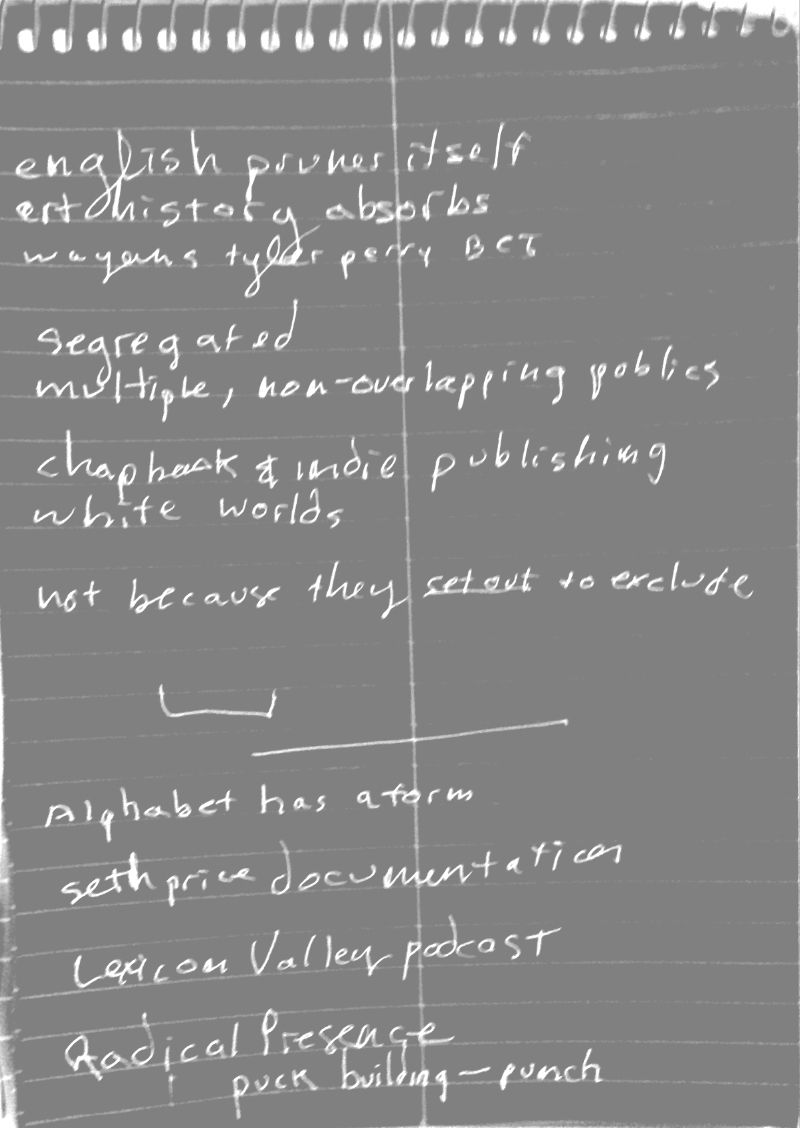 english prunes itself
art history absorbs
wayans tyler perry BET
segregated
multiple, non-overlapping publics
chapbook & indie publishing
white worlds
not because they set out to exclude
Alphabet has a form
seth price documentation
Lexicon Valley podcast
Radical Presence
puck building - punch